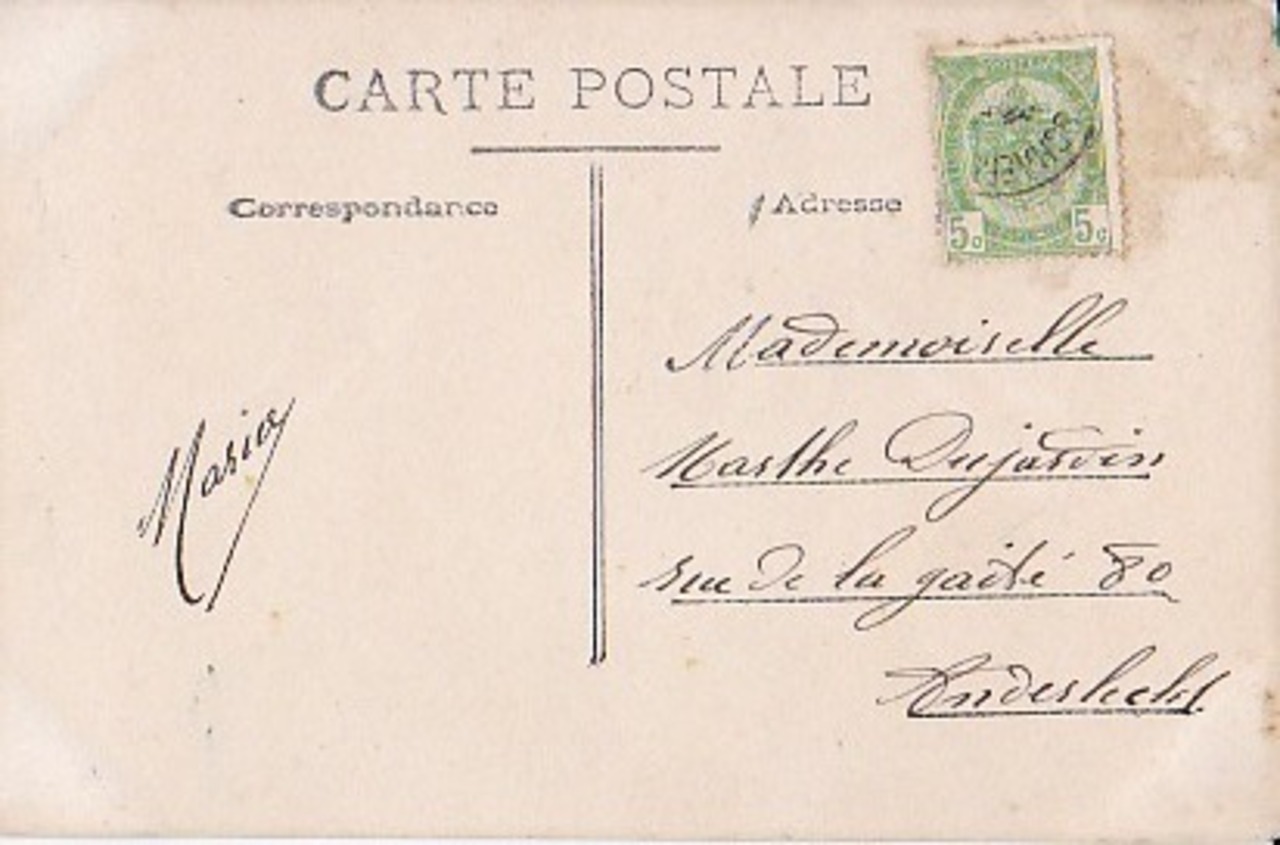 CARTE POSTALE
Correspondance
Adresse
5c 5c
Mademoiselle
Marthe Dujardin
rue de la gaité 80
Anderlecht
Maria